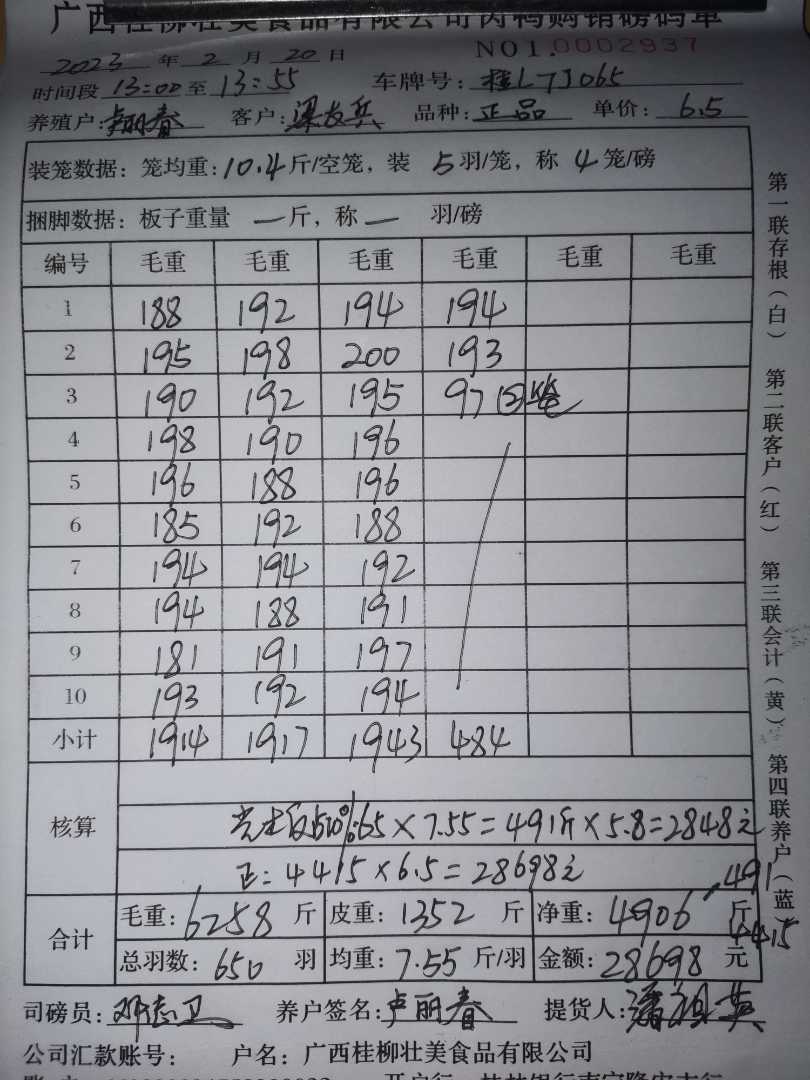 广西桂柳壮美食品有限公司肉鸭购销磅码单
2023 年 2 月 20 日 NO1.0002937
时间段 13:00 至 13:55 车牌号: 桂L7J065
养殖户: 卢丽春 客户: 梁友兵 品种: 正品 单价: 6.5
装笼数据: 笼均重: 10.4 斤/空笼, 装 5 羽/笼, 称 4 笼/磅
捆脚数据: 板子重量 — 斤, 称 — 羽/磅
编号 毛重 毛重 毛重 毛重 毛重 毛重
1 188 192 194 194
2 195 198 200 193
3 190 192 195 97 (2)笼
4 198 190 196
5 196 188 196
6 185 192 188
7 194 194 192
8 194 188 191
9 181 191 197
10 193 192 194
小计 1914 1917 1943 484
核算
10% 65×7.55=491斤×5.8=2848元
正: 4415×6.5=28698元
491
合计 毛重: 6258 斤 皮重: 1352 斤 净重: 4906 斤
4415
总羽数: 650 羽 均重: 7.55 斤/羽 金额: 28698 元
司磅员: 邓志卫 养户签名: 卢丽春 提货人: 潘祖英
公司汇款账号: 户名: 广西桂柳壮美食品有限公司
第一联存根(白) 第二联客户(红) 第三联会计(黄) 第四联养户(蓝)